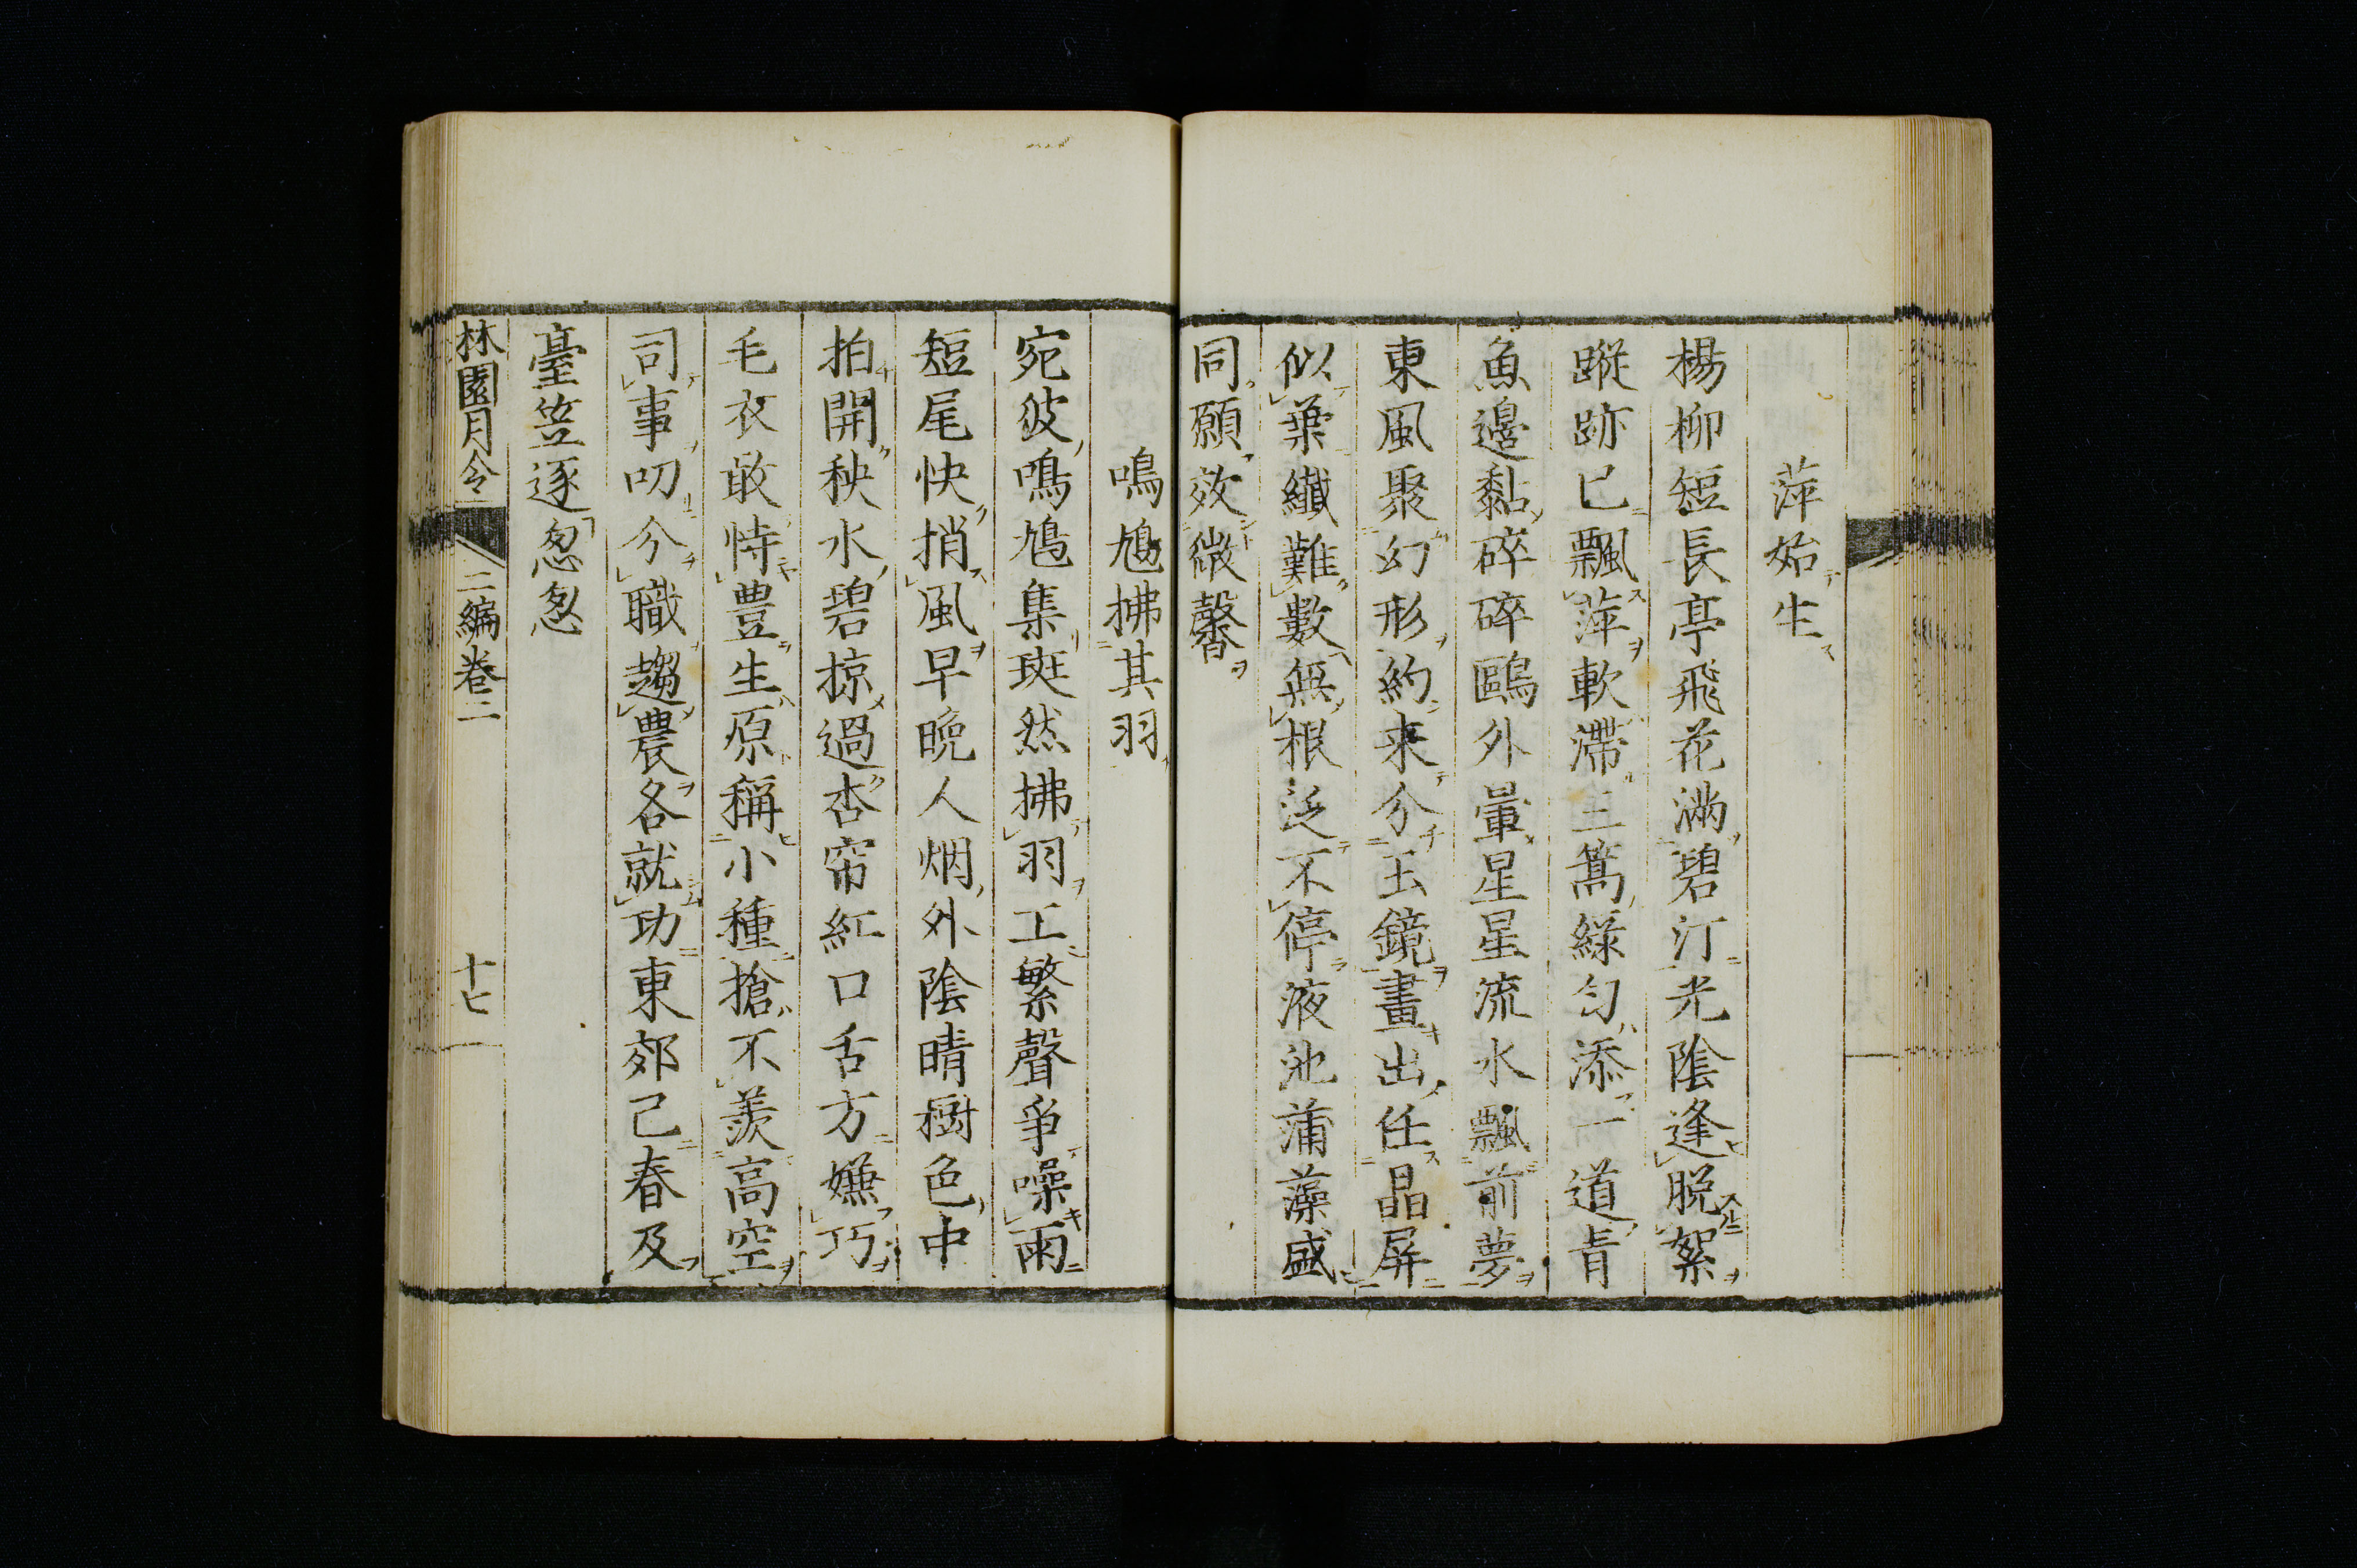 萍始生
楊柳短長亭飛花滿碧汀光陰逢脱絮
蹤跡已飄萍軟滯三篙綠匀添一道青
魚邊黏碎碎鷗外暈星星流水飄前夢
東風聚幻形約来分玉鏡畫出任晶屏
似葉纖難數無根泛不停液池蒲藻盛
同願效微馨
鳴鳩拂其羽
宛彼鳴鳩集斑然拂羽工繁聲爭噪雨
短尾快捎風早晩人烟外陰晴樹色中
拍開秧水碧掠過杏帘紅口舌方嫌巧
毛衣敢恃豊生原稱小種搶不羨高空
司事叨分職趨農各就功東郊己春及
臺笠逐怱怱
林園月令
二編卷二
十七